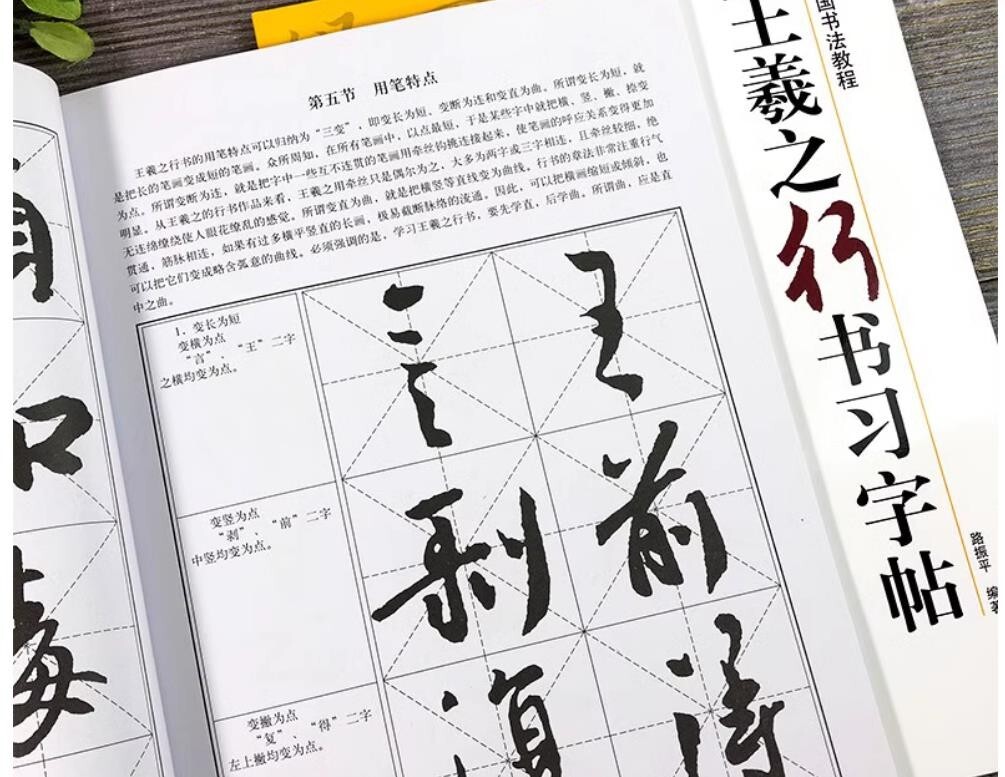 第五节 用笔特点
王羲之行书的用笔特点可以归纳为“三变”，即变长为短、变断为连和变直为曲。所谓变长为短，就
是把长的笔画变成短的笔画。众所周知，在所有笔画中，以点最短，于是某些字中就把横、竖、撇、捺变
为点。所谓变断为连，就是把字中一些互不连贯的笔画用牵丝钩挑连接起来，使笔画的呼应关系变得更加
明显。从王羲之的行书作品来看，王羲之用牵丝只是偶尔为之，大多为两字或三字相连，且牵丝较细，绝
无连绵缭绕使人眼花缭乱的感觉。所谓变直为曲，就是把横竖等直线变为曲线。行书的章法非常注重行气
贯通、筋脉相连，如果有过多横平竖直的长画，极易截断脉络的流通。因此，可以把横画缩短或倾斜，也
可以把它们变成略含弧意的曲线。必须强调的是，学习王羲之行书，要先学直，后学曲。所谓曲，应是直
中之曲。
1. 变长为短
变横为点
“言”、“王”二字
之横均变为点。
言 王
变竖为点
“剥”、“前”二字
中竖均变为点。
剥 前
变撇为点
“复”、“得”二字
左上撇均变为点。
复 得
国书法教程
王羲之行书习字帖
路振平 编著